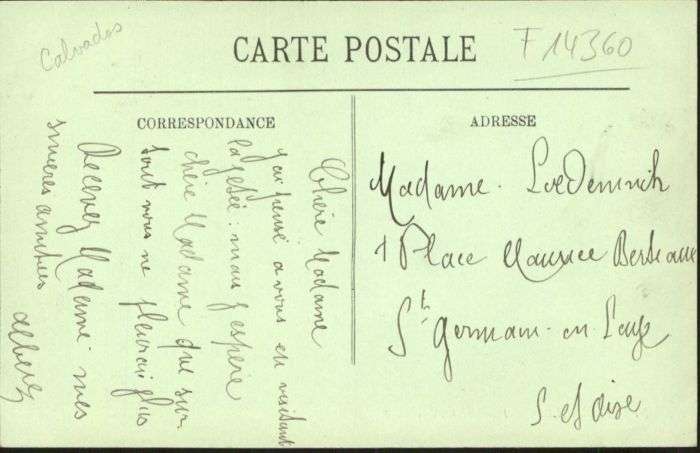 Calvados
CARTE POSTALE
F 14360
CORRESPONDANCE
Chère Madame
j'ai pensé a vous en visitant
mais j'espère
chère Madame que sur
tout vous ne pleurai plus
Recevez Madame mes
sincères amitiées
Albert
ADRESSE
Madame
1 Place Maurice Berteaux
St Germain-en-Laye
S. et Oise